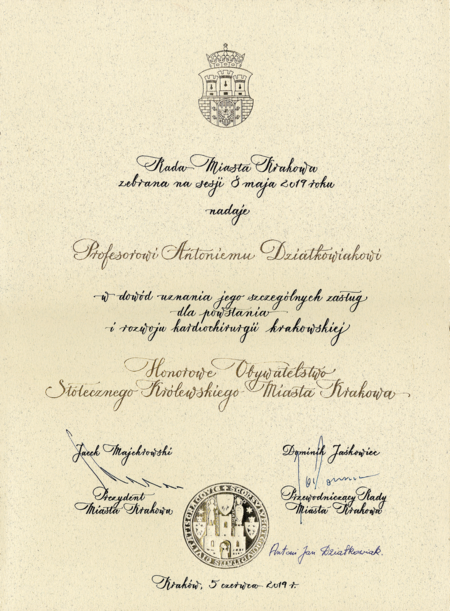 Rada Miasta Krakowa
zebrana na sesji 8 maja 2019 roku
nadaje
Profesorowi Antoniemu Dziatkowiakowi
w dowód uznania jego szczególnych zasług
dla powstania
i rozwoju kardiochirurgii krakowskiej
Honorowe Obywatelstwo
Stołecznego Królewskiego Miasta Krakowa
Jacek Majchrowski
Dominik Jaśkowiec
Prezydent
Miasta Krakowa
Przewodniczący Rady
Miasta Krakowa
Antoni Jan Dziatkowiak.
Kraków, 5 czerwca 2019 r.